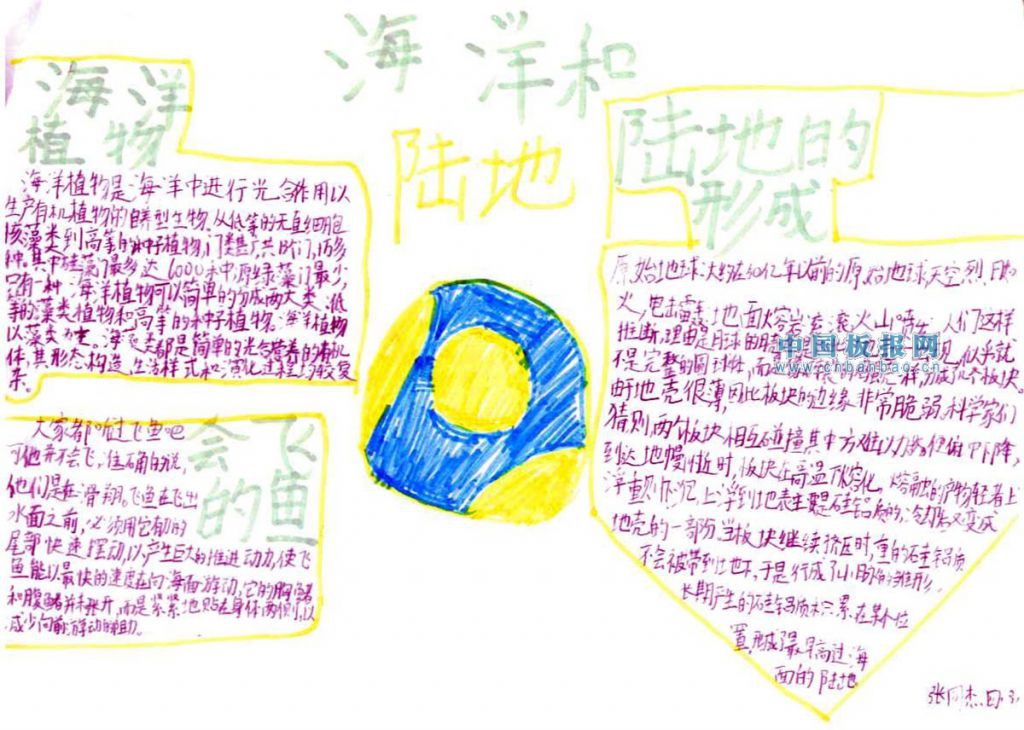 海洋和
陆地
海洋
植物
海洋植物是海洋中进行光合作用以
生产有机植物的自养型生物.从低等的无真细胞
核藻类到高等的种子植物,门类甚广,共
种.其中硅藻门最多达6000种,原绿藻门最少,
只有一种.海洋植物可以简单的分成两大类:低
等的藻类植物和高等的种子植物。海洋植物
以藻类为主。海藻类都是简单的光合营养的有机
体,其形态构造、生活样式和演化过程均较复
杂。
会飞
的鱼
大家都听过飞鱼吧
可他并不会飞,准确的说,
他们是在滑翔。飞鱼在飞出
水面之前,必须用它的
尾部快速摆动,以产生巨大的推进动力,使飞
鱼能以最快的速度在向海面游动,它的胸鳍
和腹鳍并未张开,而是紧紧地贴在身体两侧,以
减少向前游动的
陆地的
形成
原始地球:大约在40亿年以前的原始地球天空烈日
火,电击雷轰,地面大熔岩滚滚火山喷 人们这样
推断,理由是月球的
不是完整的圆球体,而 样,分成几个板块。
地壳很薄,因此板块的边缘非常脆弱.科学家们
猜测,两个板块相互碰撞其中一方
到达地幔附近时,板块在高温下熔化,熔融的产物轻者上
浮重则下沉,上浮到地表主要是硅铝质的,冷却后又变成
地壳的一部份.当板块继续挤压时,重的硅铝质
不会被带到地下,于是行成了小 的雏形.
长期产生的硅铝质积累在某个位
置,形成了最早高过海
面的陆地
中国板报网
www.cnbanbao.cn